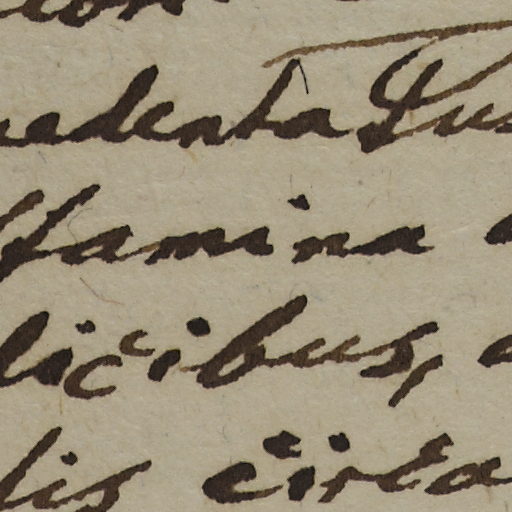 edenta Lus
stamina
licibus,
lis circa